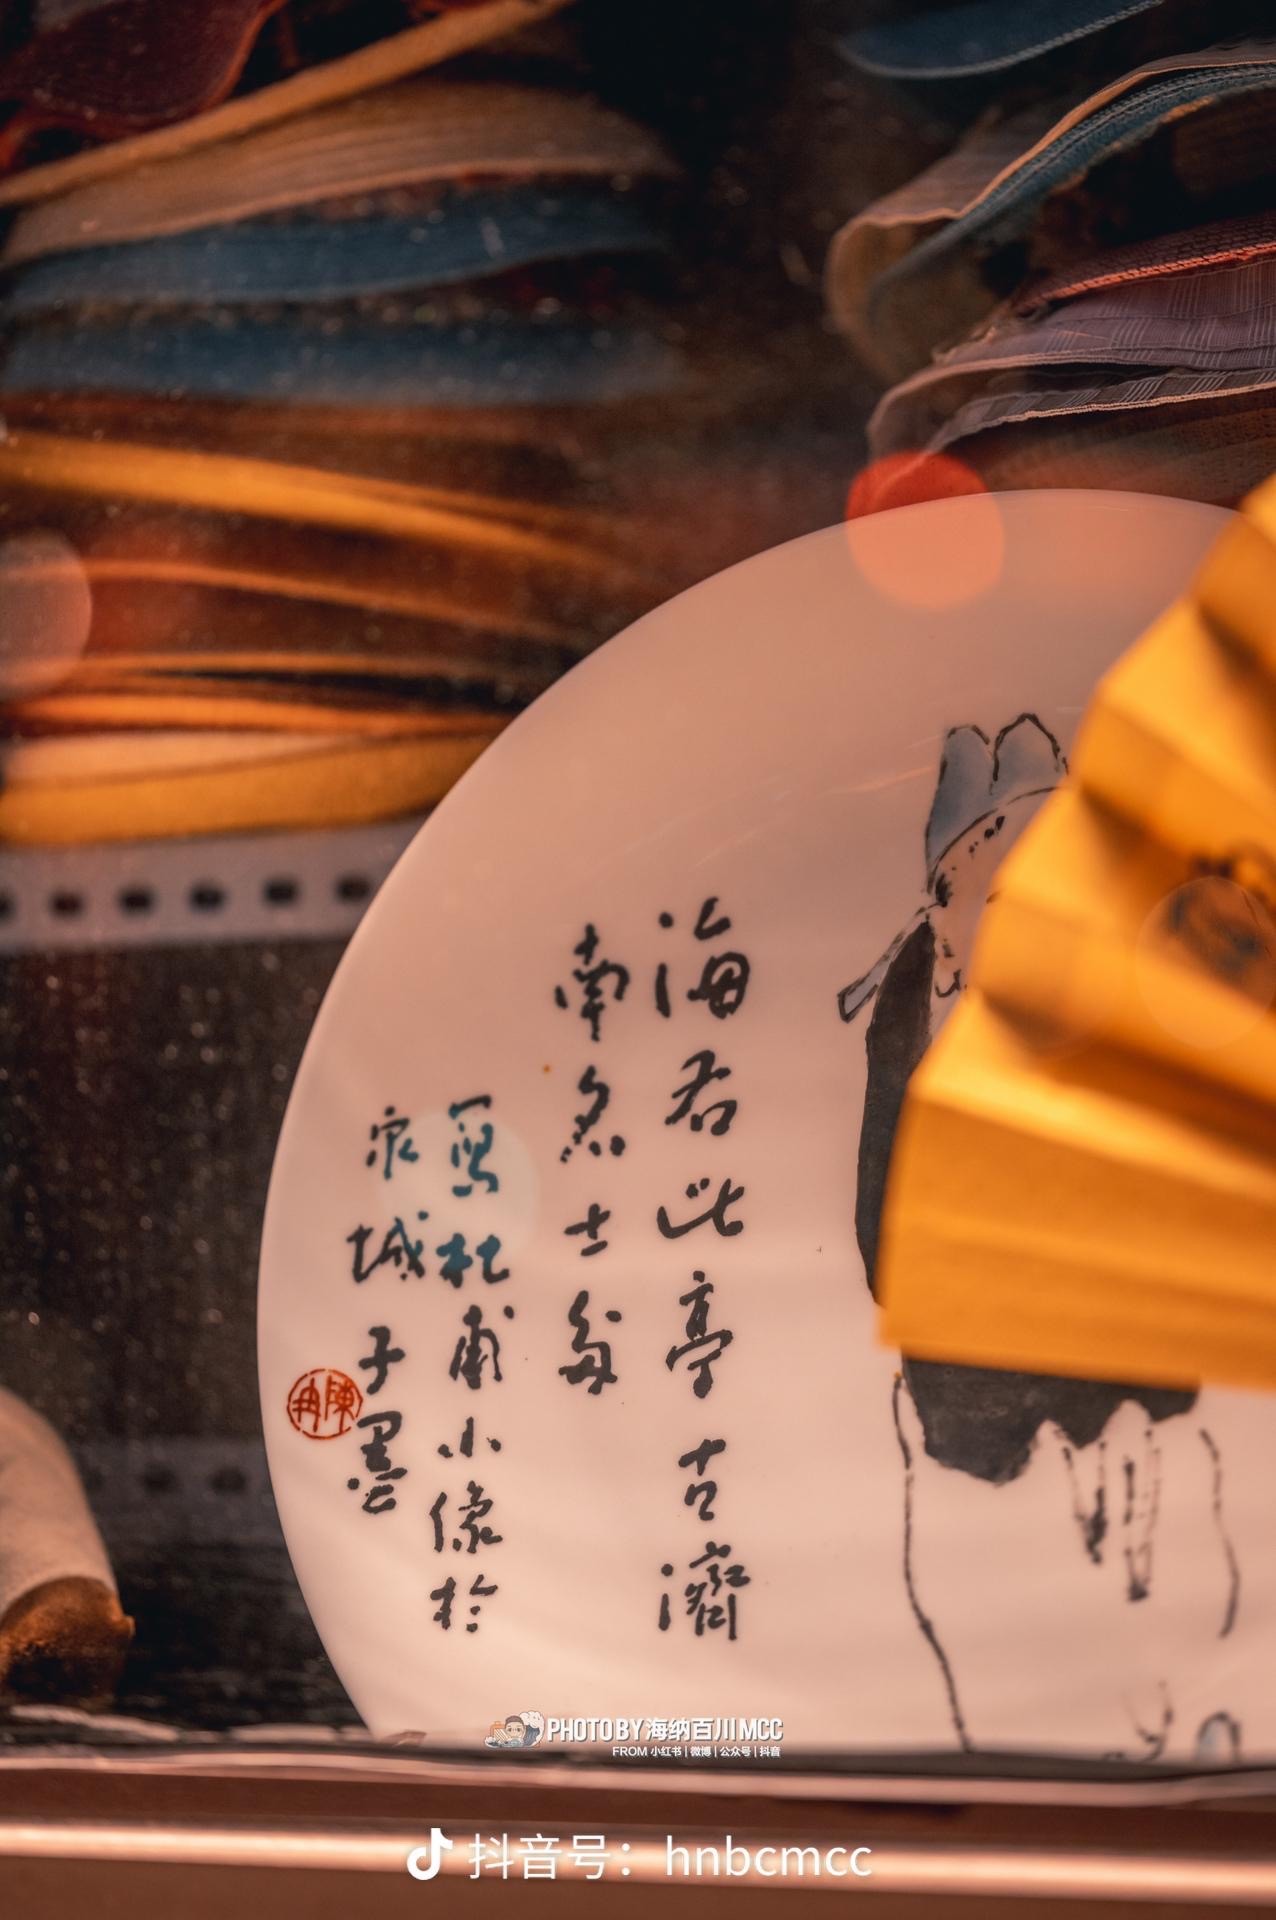 海右此亭古濟
南名士多
寫杜甫小像於
泉城子墨
陳冉
PHOTO BY 海纳百川MCC
FROM 小红书 | 微博 | 公众号 | 抖音
抖音号：hnbcmcc